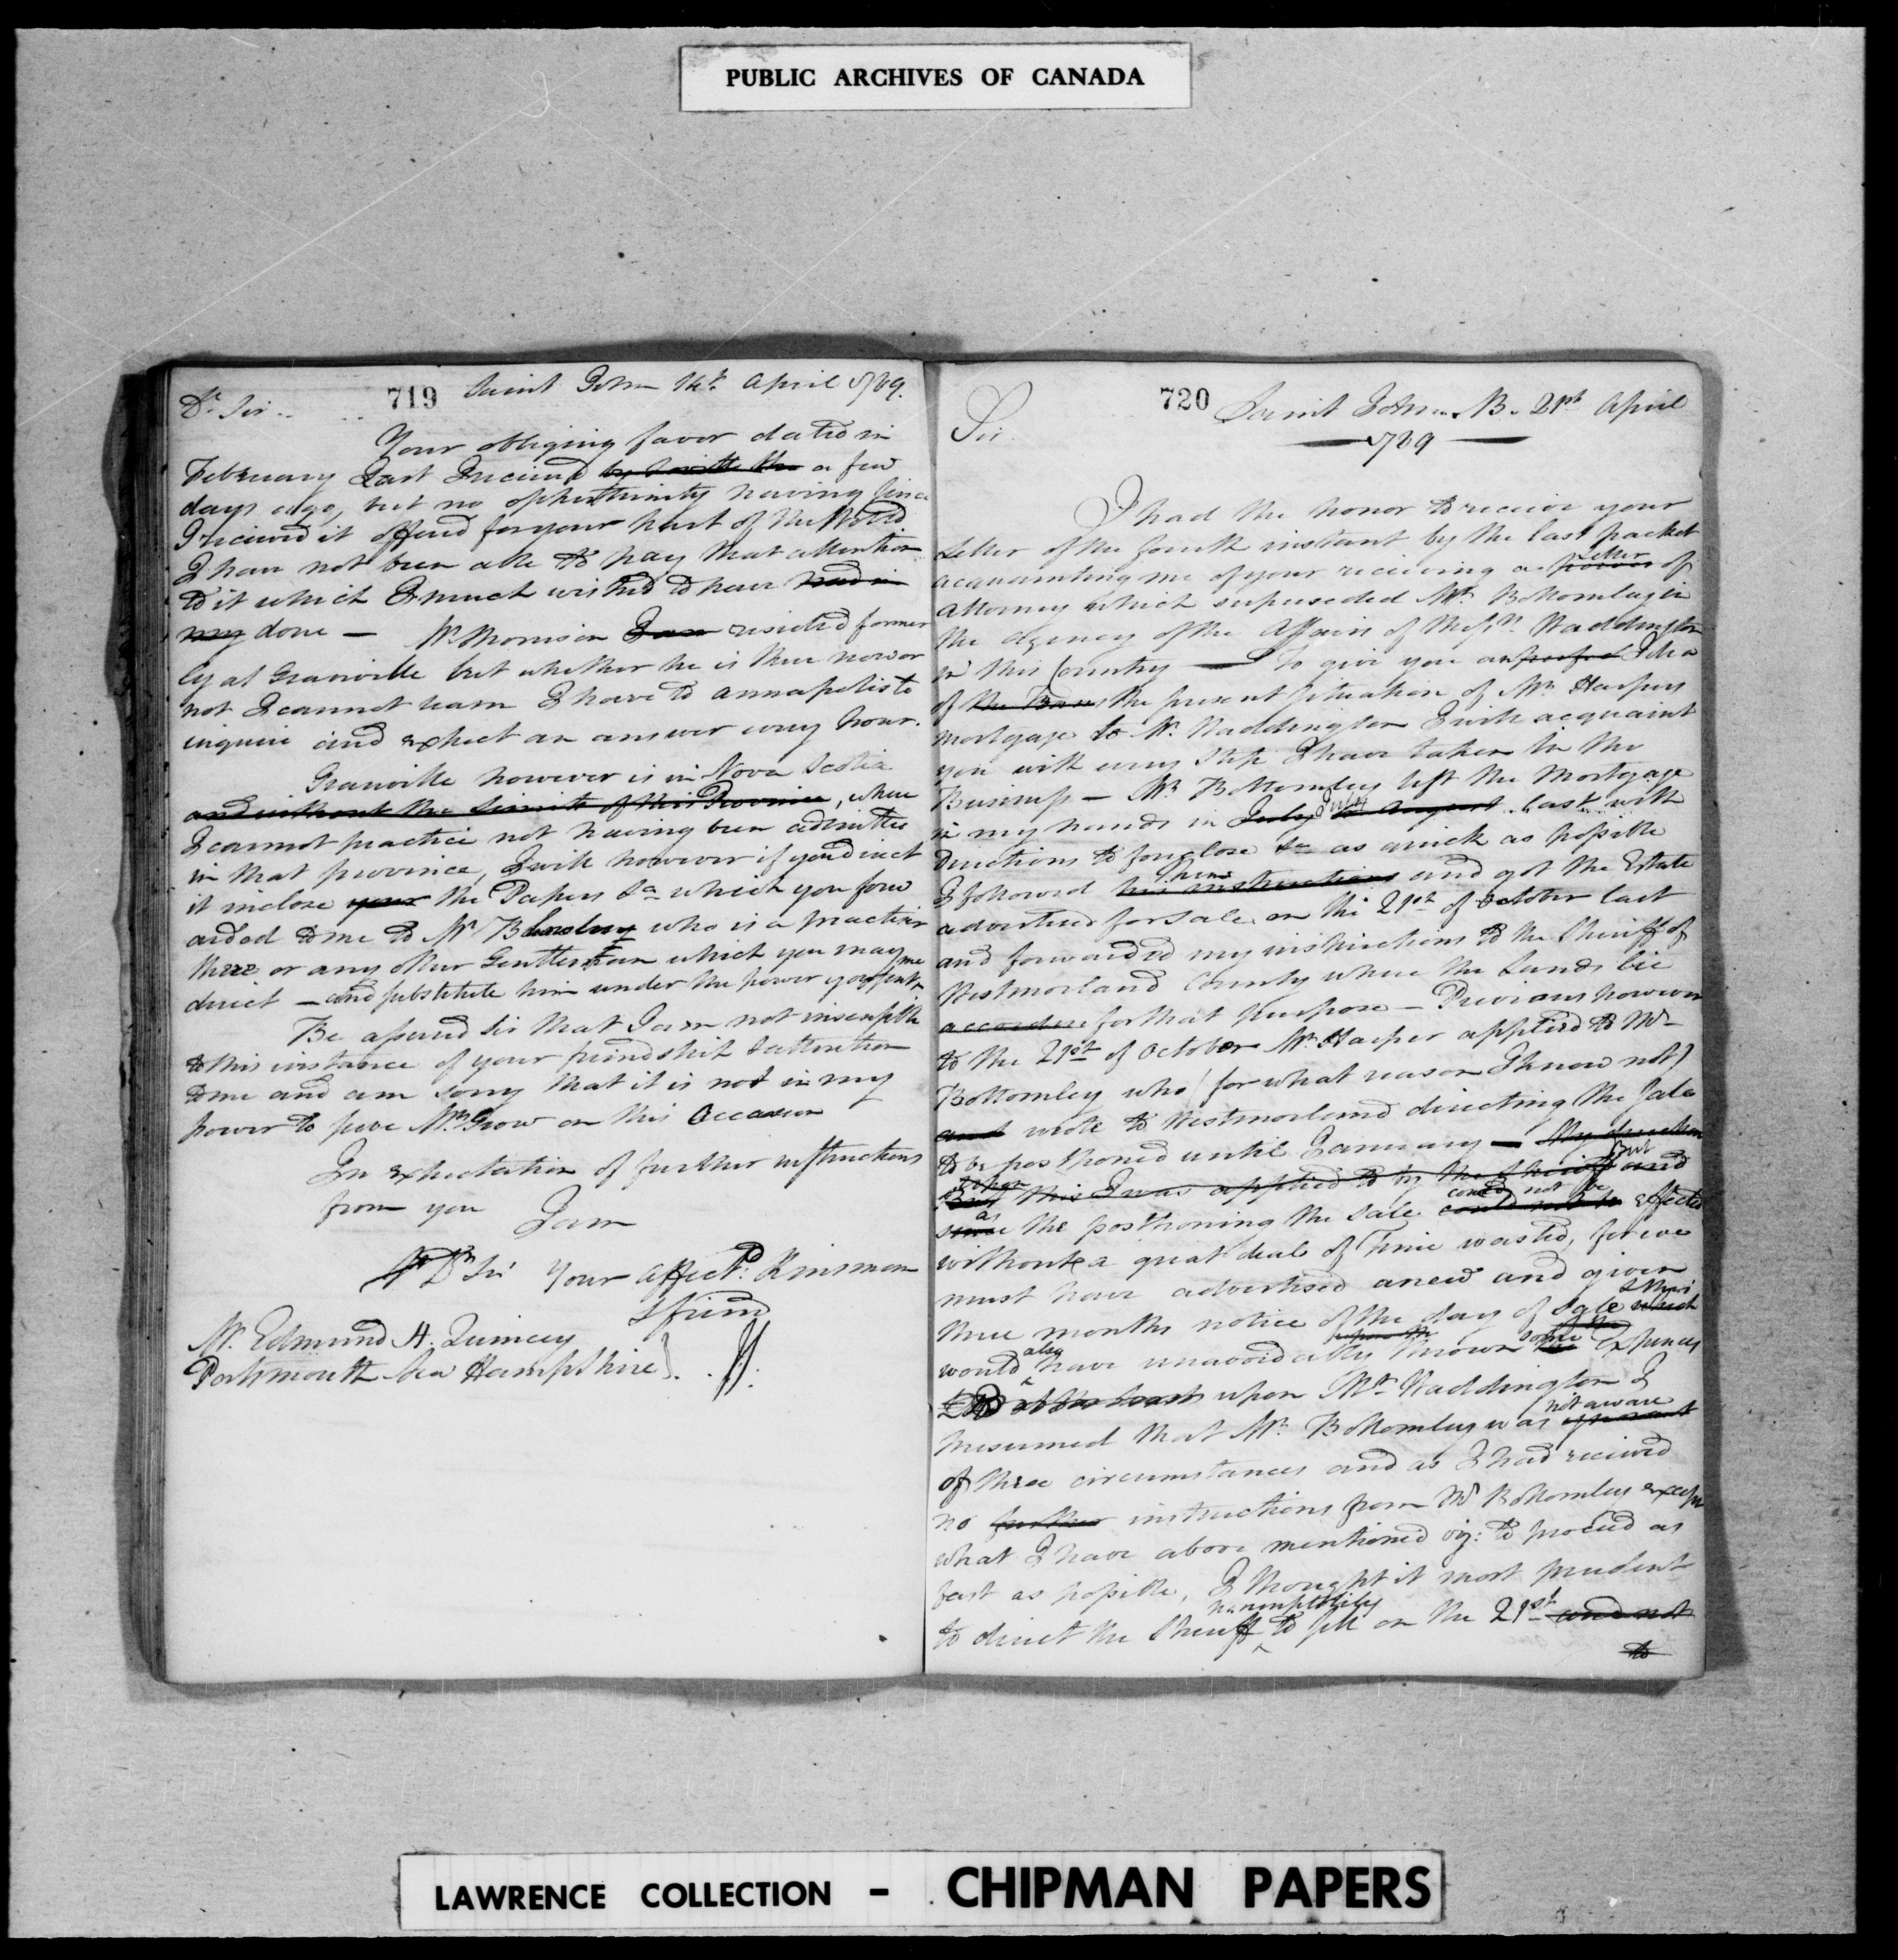 PUBLIC ARCHIVES OF CANADA
719
Saint John 14th April 1789.
Dr Sir
Your obliging favor dated in
February Last I receivd a few
days ago, but no oppertunity having since
I received it offered for your part of the World
I have not been able to pay that attention
to it which I much wished to have had in
my done — Mr Morrison I am resided former
ly at Granville but whether he is there now or
not I cannot learn I have to Annapolis to
inquire and expect an answer every hour.
Granville however is in Nova Scotia
and without the Limits of this Province, where
I cannot practice not having been admitted
in that province, I will however if you direct
it inclose your the Papers &a which you forw
arded to me to Mr who is a practicer
there or any other Gentleman which you may
direct — and substitute him under the power you sent me
Be assured Sir that I am not insensible
to this instance of your friendship & attention
to me and am sorry that it is not in my
power to serve Mr Grow on this Occasion
In expectation of further instructions
from you I am
Dr Sir Your affectd. Kinsman
& friend
Mr. Edmund H. Quincy
Portsmouth New Hampshire
720
Saint John N.B. 21st April
1789
Sir
I had the honor to receive your
Letter of the fourth instant by the last packet
acquainting me of your receiving a power Letter of
Attorney which superseded Mr Bottomley in
the agency of the Affairs of Messrs. Waddington
in this Country — To give you a perfect Idea
of the present situation of Mr Harpers
mortgage to Mr. Waddington I will acquaint
you with every Step I have taken in the
Business — Mr Bottomley left the Mortgage
in my hands in July last with
Directions to foreclose &a as quick as possible
I followed his instructions them and got the Estate
advertised for sale on the 21st of October last
and forwarded my instructions to the Sheriff of
Westmorland County where the Lands lie
for that purpose — Previous however
to the 21st of October Mr Harper applied to Mr
Bottomley who (for what reason I know not)
and wrote to Westmorland directing the Sale
to be postponed until January — My direction
this I was applied to by the Sheriff and but
since as the postponing the Sale could not be could not be effected
without a great deal of Time wasted, for we
must have advertised anew and given
three months notice of the day of Sale which
would also have unavoidably thrown some the Expences
upon Mr Waddington I
presumed that Mr. Bottomley was ignorant not aware
of these circumstances and as I had received
no further instructions from Mr Bottomley except
what I have above mentioned viz: to proceed as
fast as possible, I thought it most prudent
to direct the Sheriff peremptorily to sell on the 21st and not
to
LAWRENCE COLLECTION - CHIPMAN PAPERS